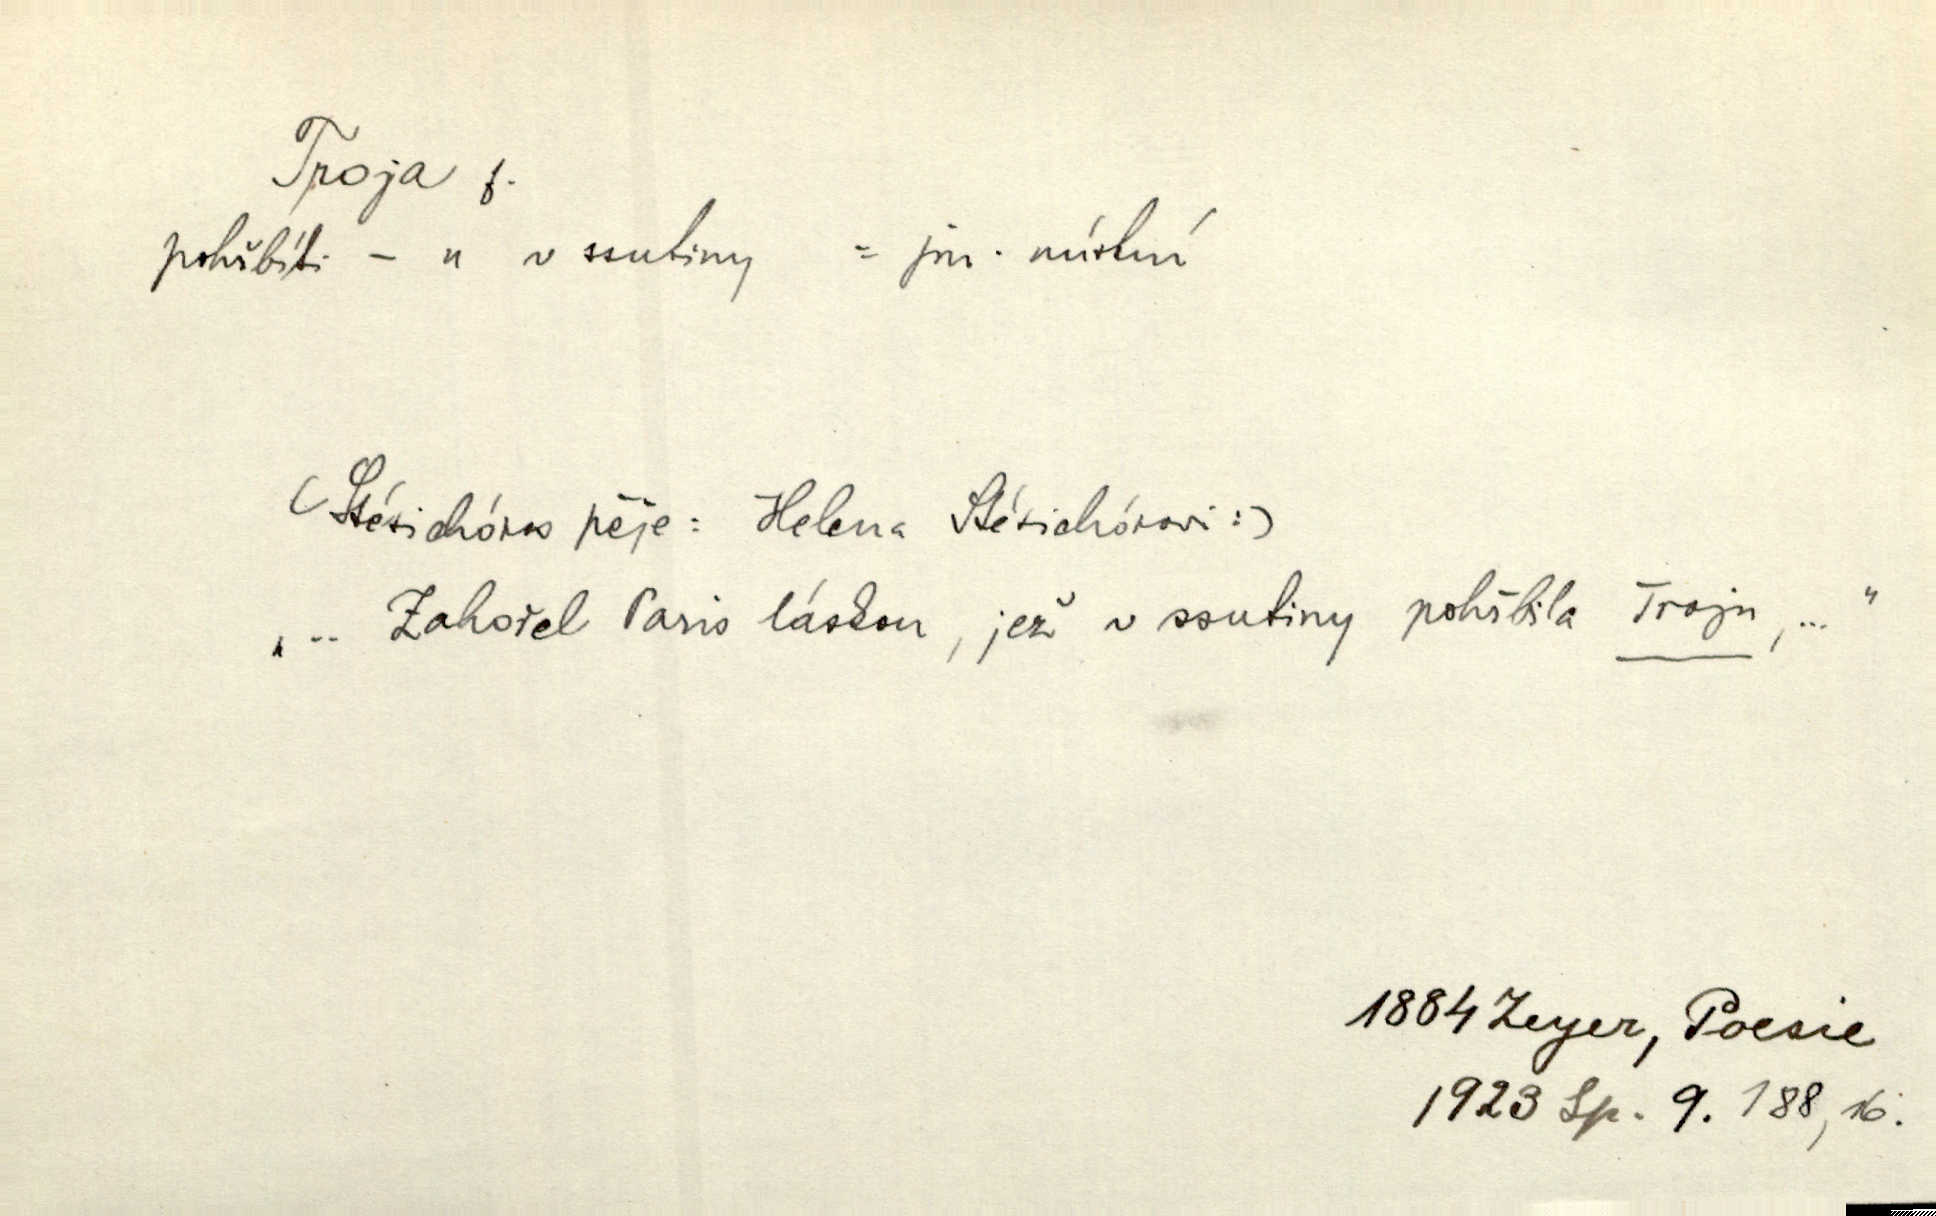 Troja f.
pohřbíti – u v ssutiny = jm. místní
(Stésichóros pěje: Helena Stésichórovi:)
„.. Zahořel Paris láskou, jež v ssutiny pohřbila Troju,..."
1884 Zeyer, Poesie
1923 Sp. 9. 188, 16.